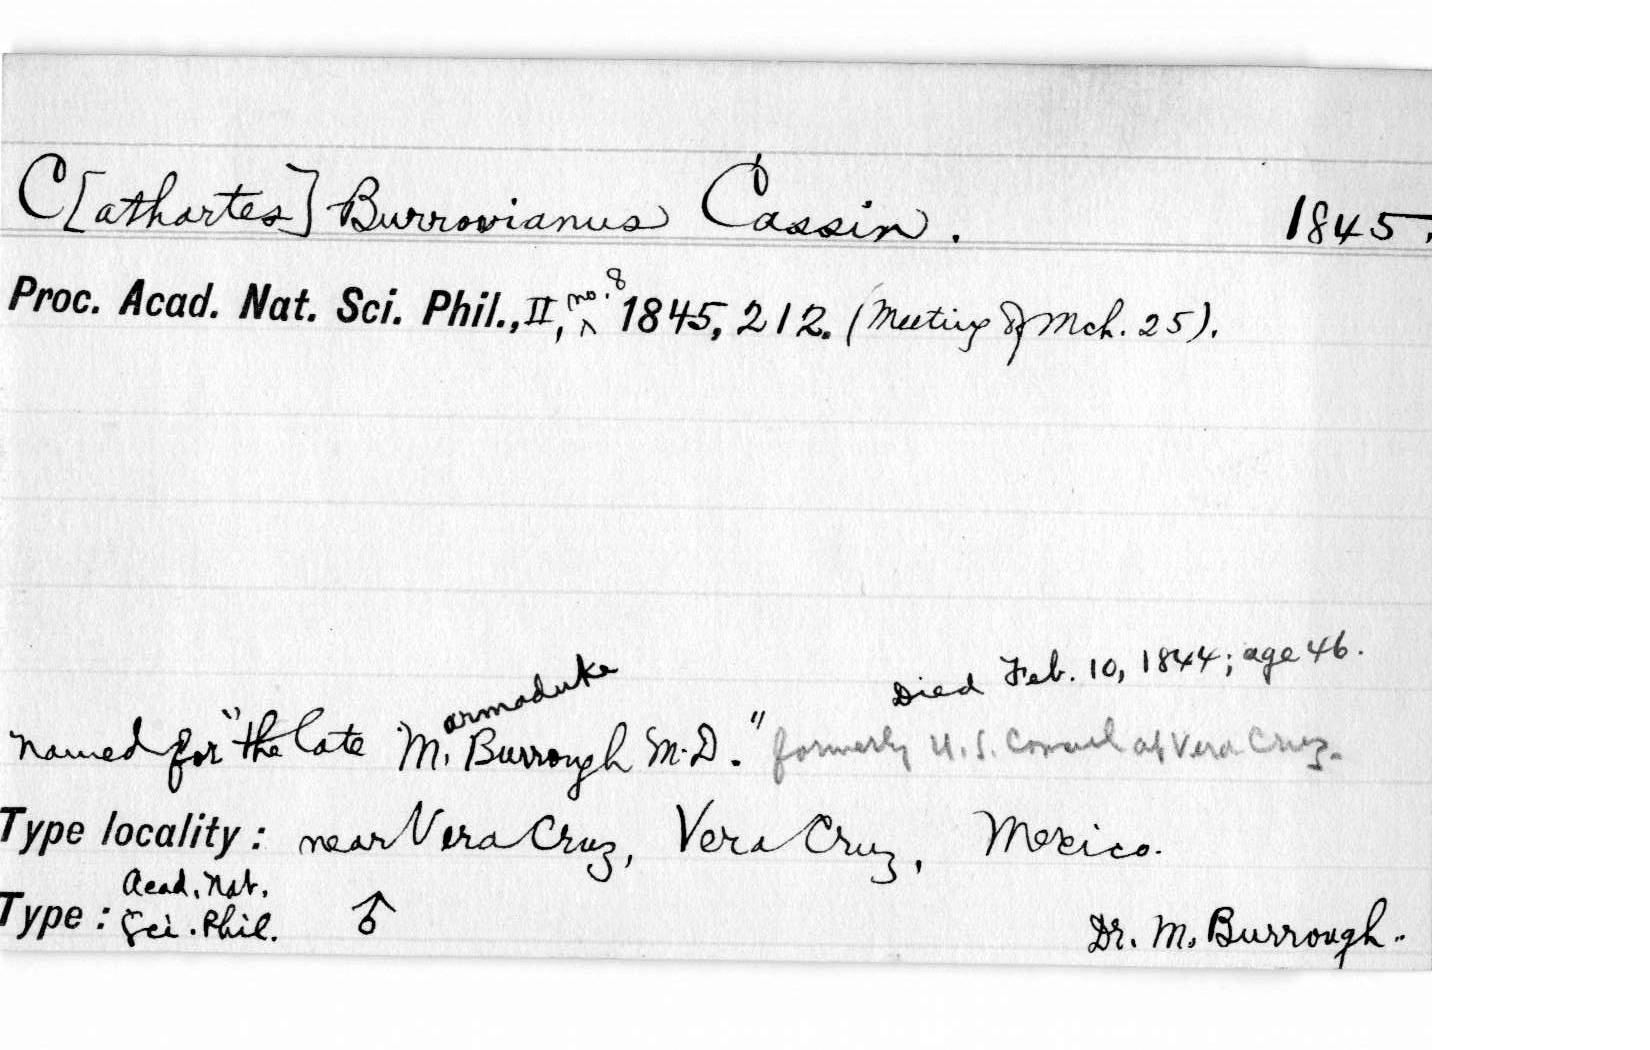 C[athartes] Burrovianus Cassin. 1845.
Proc. Acad. Nat. Sci. Phil., II, no. 8 1845, 212. (Meeting of Mch. 25).
Died Feb. 10, 1844; age 46.
armaduke
Named for "the late M. Burrough M.D." formerly U.S. Consul at Vera Cruz.
Type locality: near Vera Cruz, Vera Cruz, Mexico.
Acad. Nat.
Type: Sci. Phil. ♂ Dr. M. Burrough.